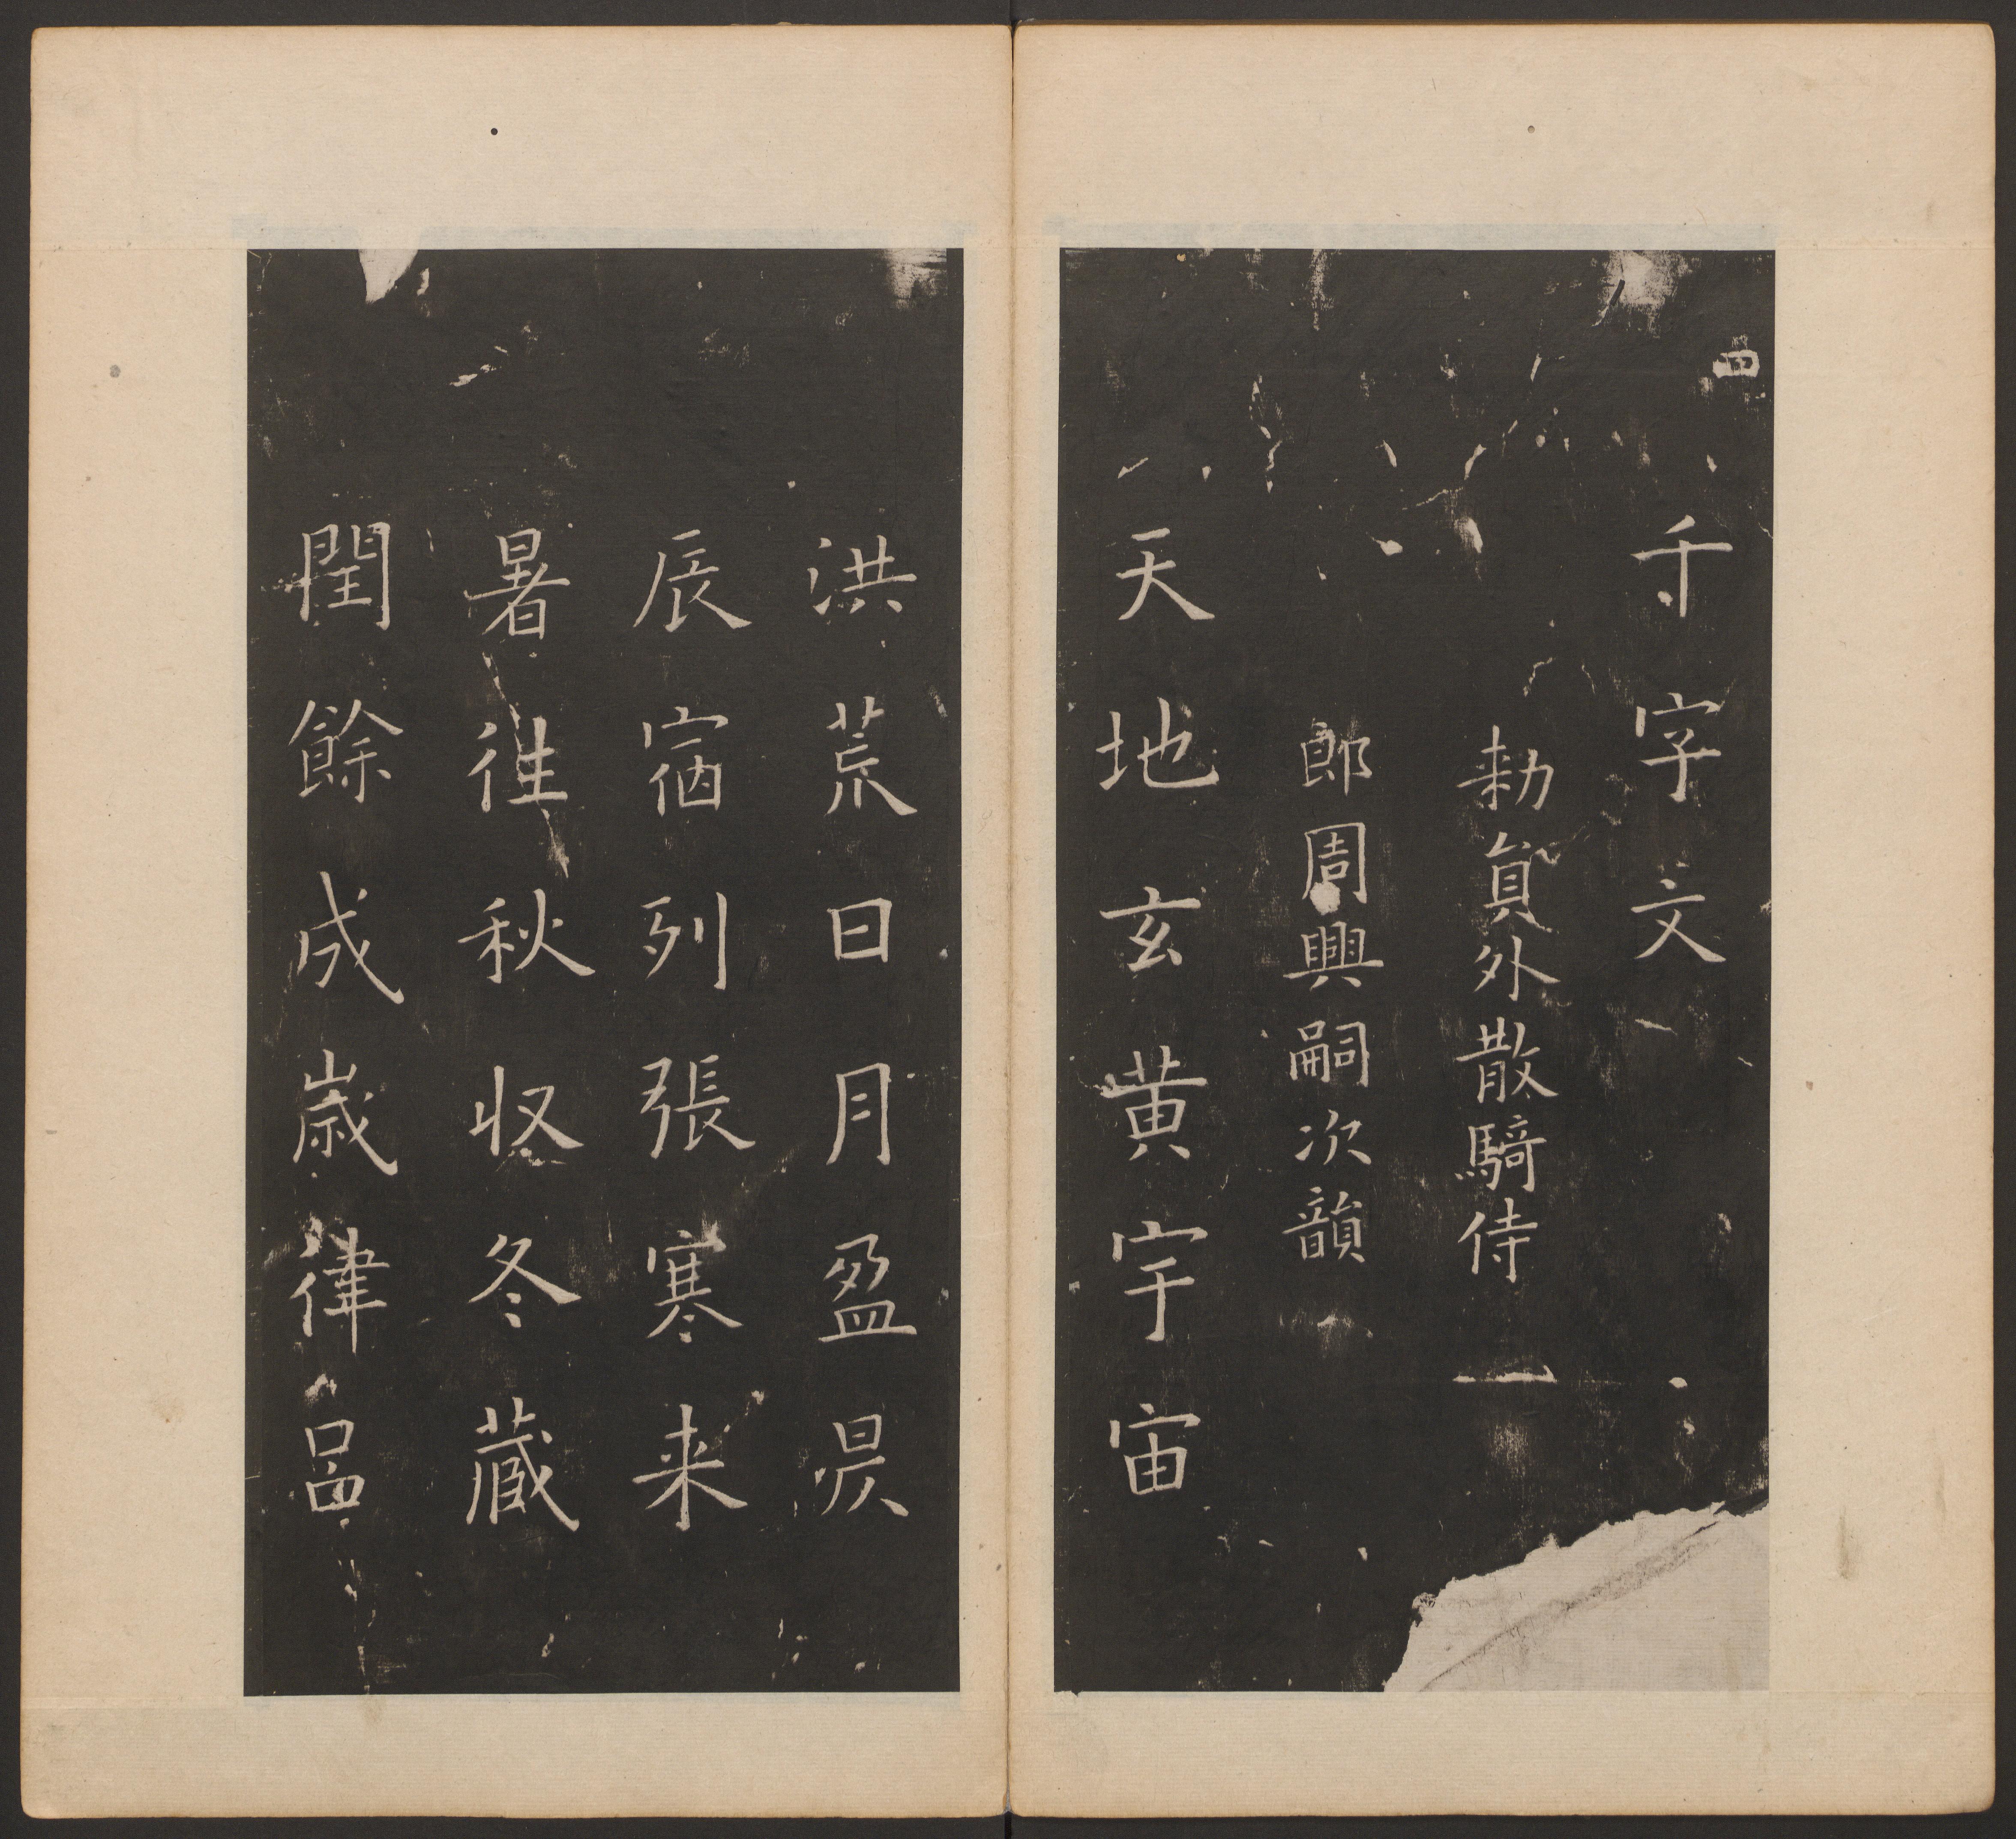 四
千字文
勑貟外散騎侍
郎周興嗣次韻
天地玄黄宇宙
洪荒日月盈昃
辰宿列張寒来
暑徃秋收冬蔵
閏餘成歳律吕